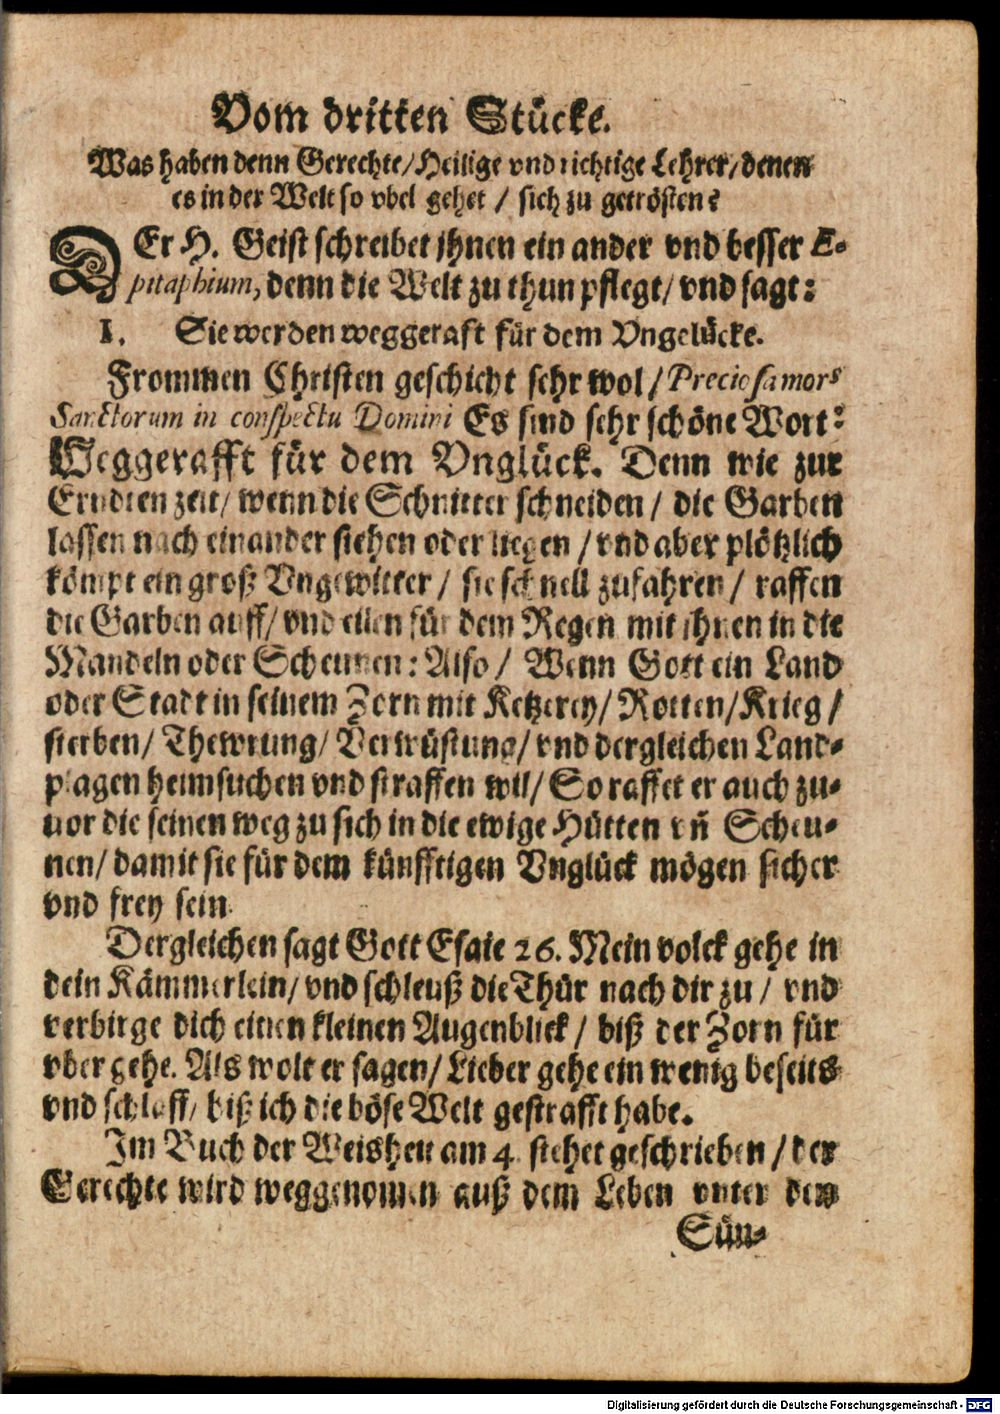 Vom dritten Stücke.
Was haben denn Gerechte/ Heilige vnd richtige Lehrer/ denen
es in der Welt so vbel gehet / sich zu getrösten?
DEr H. Geist schreibet ihnen ein ander vnd besser E-
pitaphium, denn die Welt zu thun pflegt/ vnd sagt:
1. Sie werden weggeraft für dem Vngelücke.
Frommen Christen geschicht sehr wol/ Preciosa mors
Sanctorum in conspectu Domini Es sind sehr schöne Wort:
Weggerafft für dem Vnglück. Denn wie zur
Erndten zeit/ wenn die Schnitter schneiden / die Garben
lassen nach einander stehen oder liegen / vnd aber plötzlich
kömpt ein groß Vngewitter / sie schnell zufahren / raffen
die Garben auff/ vnd eilen für dem Regen mit ihnen in die
Mandeln oder Scheunen: Also / Wenn Gott ein Land
oder Stadt in seinem Zorn mit Ketzerey/ Rotten/ Krieg /
sterben/ Thewrung/ Verwüstung/ vnd dergleichen Land-
plagen heimsuchen vnd straffen wil/ So raffet er auch zu-
uor die seinen weg zu sich in die ewige Hütten vñ Scheu-
nen/ damit sie für dem künfftigen Vnglück mögen sicher
vnd frey sein.
Dergleichen sagt Gott Esaie 26. Mein volck gehe in
dein Kämmerlein/ vnd schleuß die Thür nach dir zu / vnd
verbirge dich einen kleinen Augenblick / biß der Zorn für
vber gehe. Als wolt er sagen/ Lieber gehe ein wenig beseits
vnd schlaff/ biß ich die böse Welt gestrafft habe.
Im Buch der Weisheit am 4. stehet geschrieben / der
Gerechte wird weggenomen auß dem Leben vnter den
Sün-
Digitalisierung gefördert durch die Deutsche Forschungsgemeinschaft - DFG